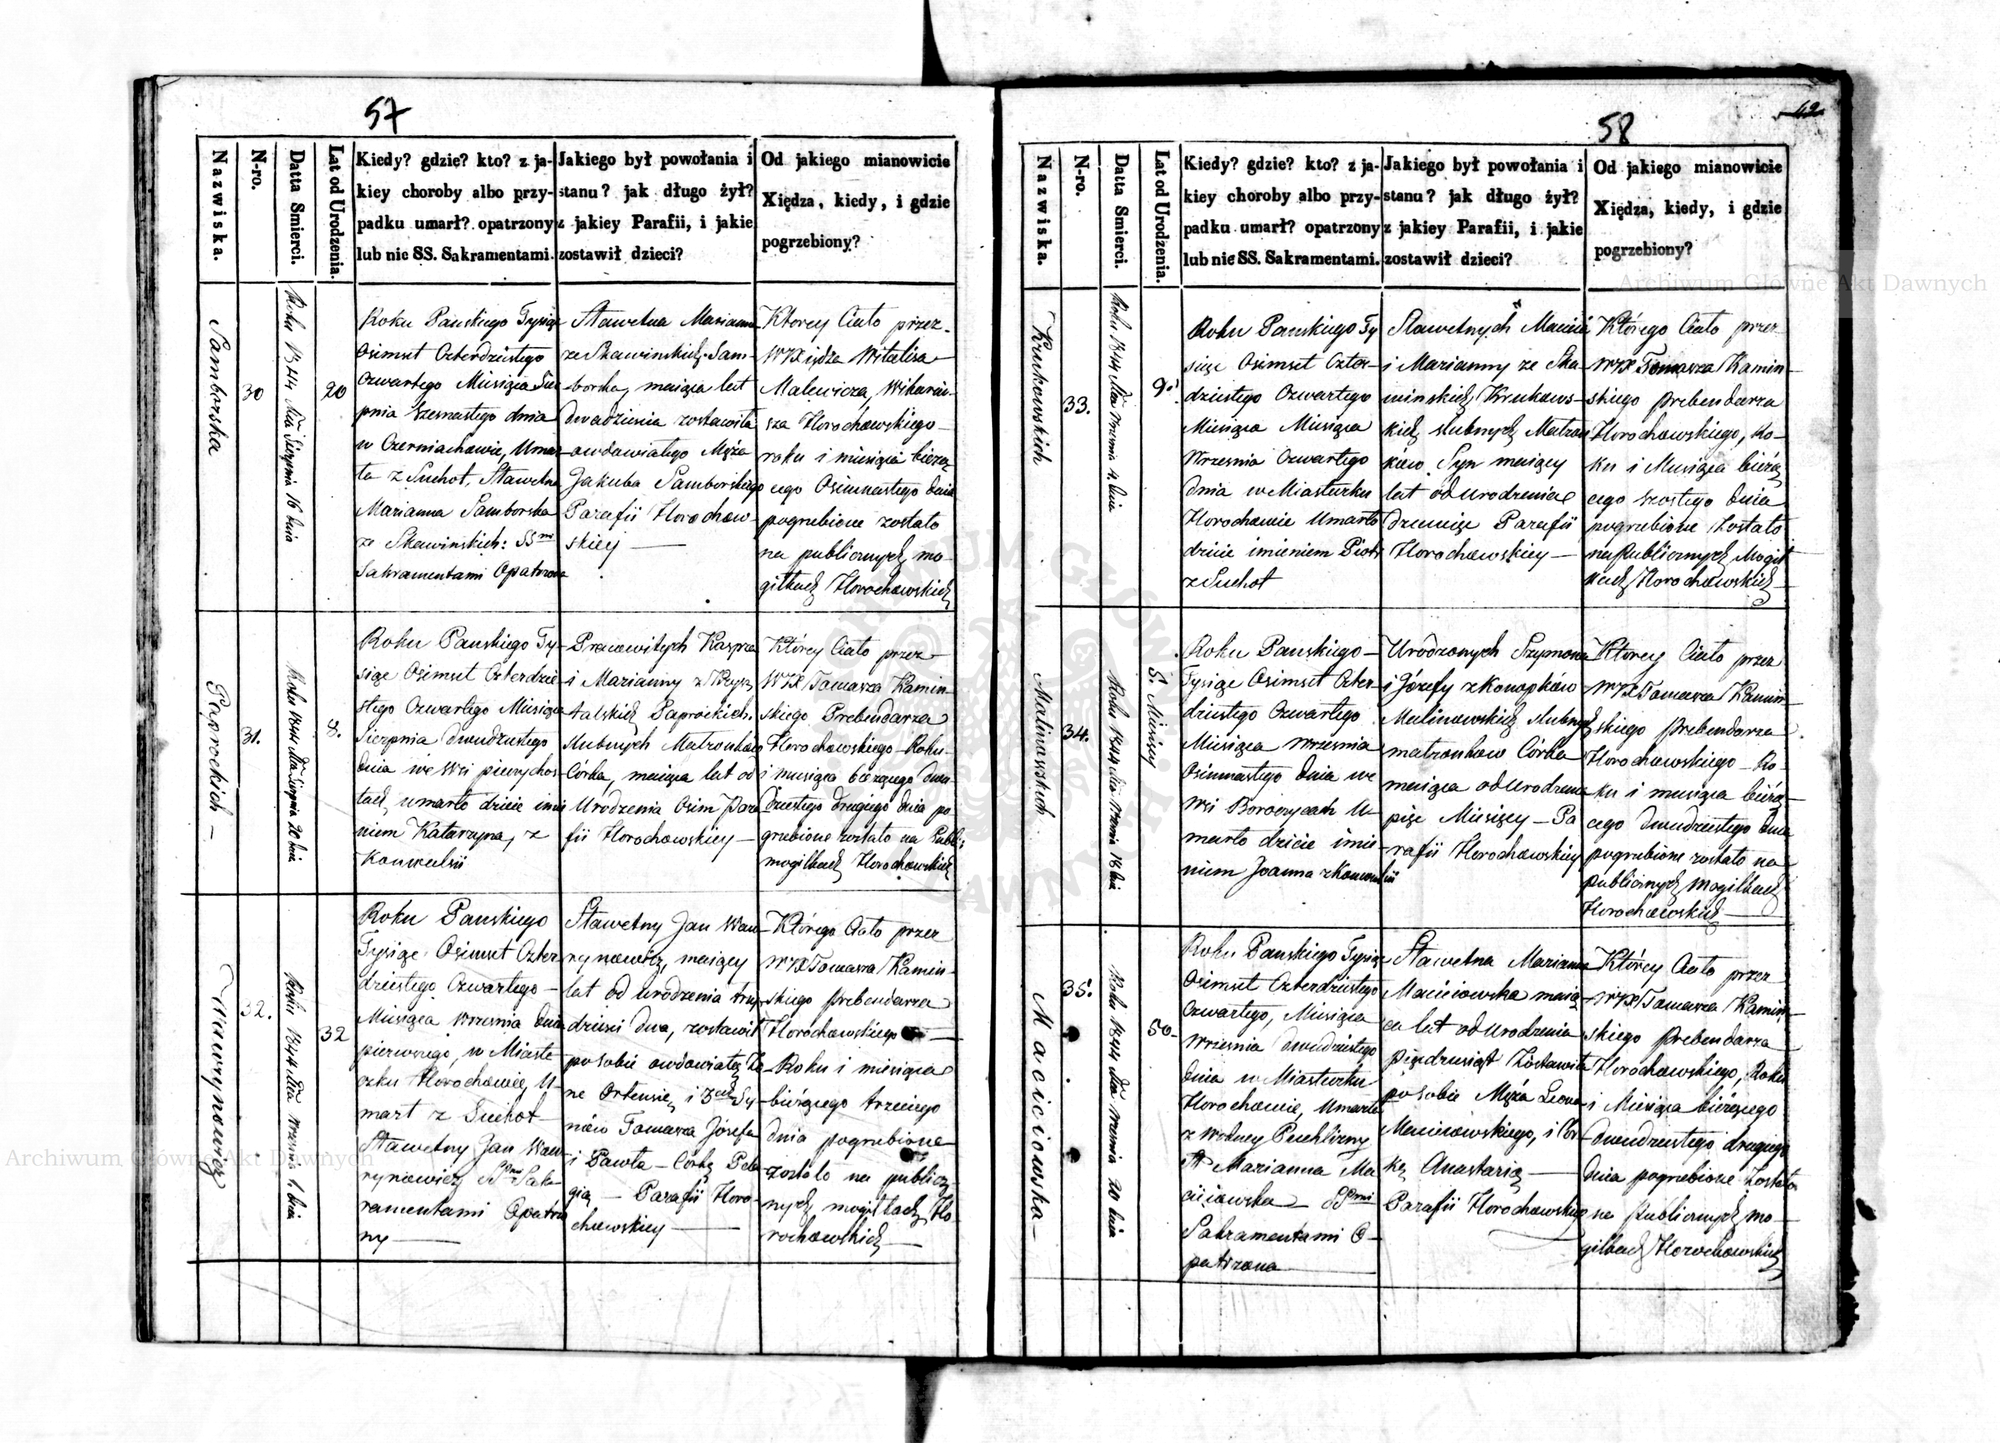 57
Nazwiska.
N-ro.
Datta Smierci.
Lat od Urodzenia.
Kiedy? gdzie? kto? z ja-
kiey choroby albo przy-
padku umarł? opatrzony
lub nie SS. Sakramentami.
Jakiego był powołania i
stanu? jak długo żył?
z jakiey Parafii, i jakie
zostawił dzieci?
Od jakiego mianowicie
Xiędza, kiedy, i gdzie
pogrzebiony?
Samborska
30
Roku 1844 Mca Sierpnia 16 dnia
20
Roku Pańskiego Tysiąc
Osimset Czterdziestego
Czwartego Miesiąca Sier
pnia Szesnastego dnia
w Czerniachowie, Umar
ła z Suchot, Sławetna
Marianna Samborska
ze Skawińskich: SSmi
Sakramentami Opatrzona
Sławetna Marianna
ze Skawinskich Sam-
borska, maiąca lat
dwadzieścia zostawiła
owdowiałego Męża
Jakuba Samborskiego
Parafii Horochow-
skiey
Ktorey Ciało przez
WJXiędza Witalisa
Malewicza, Wikariu-
sza Horochowskiego
roku i miesiąca bieżą
cego Osimnastego dnia
pogrzebione zostało
na publicznych mo-
giłkach Horochowskich
Paprockich
31.
Roku 1844 Mca Sierpnia 20 dnia
8.
Roku Panskiego Ty-
siąc Osimset Czterdzie
stego Czwartego Miesiąca
Sierpnia dwudziestego
dnia we Wsi pierychos
tach, umarło dziecie imie
niem Katarzyna, z
Konwulsii
Pracowitych Kaspra
i Marianny z Krysz
talskich Paprockich
slubnych Matronków
Córka, maiąca lat od
Urodzenia Osim Para
fii Horochowskiey
Którey Ciało przez
WJX Tomasza Kamin-
skiego Prebendarza
Horochowskiego Roku
i miesiąca bieżącego dwu
dziestego drugiego dnia po
grzebione zostało na Publi:
mogilkach Horochowskich
Wawrynowicz
32.
Roku 1844 Mca Wrzesnia 1. dnia
32
Roku Panskiego
Tysiąc Osimset Czter
dziestego Czwartego
Miesiąca Wrzesnia dnia
pierwszego, w Miaste
czku Horochowie, U
marł z Suchot
Sławetny Jan Waw
rynowicz SSmi Sak-
ramentami Opatrzo
ny
Sławetny Jan Waw
rynowicz, maiący
lat od urodzenia trzy
dzieści dwa, zostawił
po sobie owdowiałą Żo
nę Ortensię i 3ch Sy-
nów Tomasza Józefa
i Pawła - Córkę Pela
gią - Parafii Horo-
chowskiey
Którego Ciało przez
WJX Tomasza Kamin-
skiego prebendarza
Horochowskiego
Roku i miesiąca
bieżącego trzeciego
dnia pogrzebione
zostało na publicz
nych mogiłkach Ho-
rochowskich
58
42
Nazwiska.
N-ro.
Datta Smierci.
Lat od Urodzenia.
Kiedy? gdzie? kto? z ja-
kiey choroby albo przy-
padku umarł? opatrzony
lub nie SS. Sakramentami.
Jakiego był powołania i
stanu? jak długo żył?
z jakiey Parafii, i jakie
zostawił dzieci?
Od jakiego mianowicie
Xiędza, kiedy, i gdzie
pogrzebiony?
Krukowskich
33.
Roku 1844 Mca Wrzesnia 4 dnia
9.
Roku Panskiego Ty
siąc Osimset Czter-
dziestego Czwartego
Miesiąca Miesiąca
Wrzesnia Czwartego
dnia w Miasteczku
Horochowie Umarło
dziecie imieniem Piotr
z Suchot
Sławetnych Macieia
i Marianny ze Ska
winskich Krukows-
kich slubnych Matron
ków Syn maiący
lat od Urodzenia
dziewięć Parafii
Horochowskiey
Którego Ciało przez
WJX Tomasza Kamin-
skiego prebendarza
Horochowskiego, Ro-
ku i Miesiąca bieżą
cego szostego dnia
pogrzebione zostało
na Publicznych Mogił
kach Horochowskich
Malinowskich
34.
Roku 1844 Mca Wrzesnia 18 dnia
5. Miesięcy
Roku Panskiego
Tysiąc Osimset Czter-
dziestego Czwartego
Miesiąca Wrzesnia
Osimnastego dnia we
Wsi Boroczycach U-
marło dziecie imie
niem Joanna z konwulsii
Urodzonych Szymona
i Józefy z Konopków
Malinowskich slubnych
matronków Córka
maiąca od Urodzenia
pięc Miesięcy - Pa
rafii Horochowskiey
Ktorey Ciało przez
WJX Tomasza Kamin-
skiego prebendarza
Horochowskiego Ro-
ku i miesiąca bieżą-
cego dwudziestego dnia
pogrzebione zostało na
publicznych mogilkach
Horochowskich
Maciciowska
35.
Roku 1844 Mca Wrzesnia 20 dnia
50.
Roku Panskiego Tysiąc
Osimset Czterdziestego
Czwartego, Miesiąca
Wrzesnia dwudziestego
dnia w Miasteczku
Horochowie, Umarła
z wodney Puchliny
Marianna Ma
ciciowska SSmi
Sakramentami O-
patrzona
Sławetna Marianna
Maciciowska maią
ca lat od Urodzenia
pięcdziesiąt Zostawiła
po sobie Męża Leona
Maciciowskiego, i Cór
kę Anastazią
Parafii Horochowskiey
Którey Ciało przez
WJX Tomasza Kamin-
skiego prebendarza
Horochowskiego, Roku
i Miesiąca bieżącego
dwudziestego drugiego
dnia pogrzebione Zostało
na publicznych mo-
gilkach Horochowskich
Archiwum Główne Akt Dawnych
Archiwum Główne Akt Dawnych